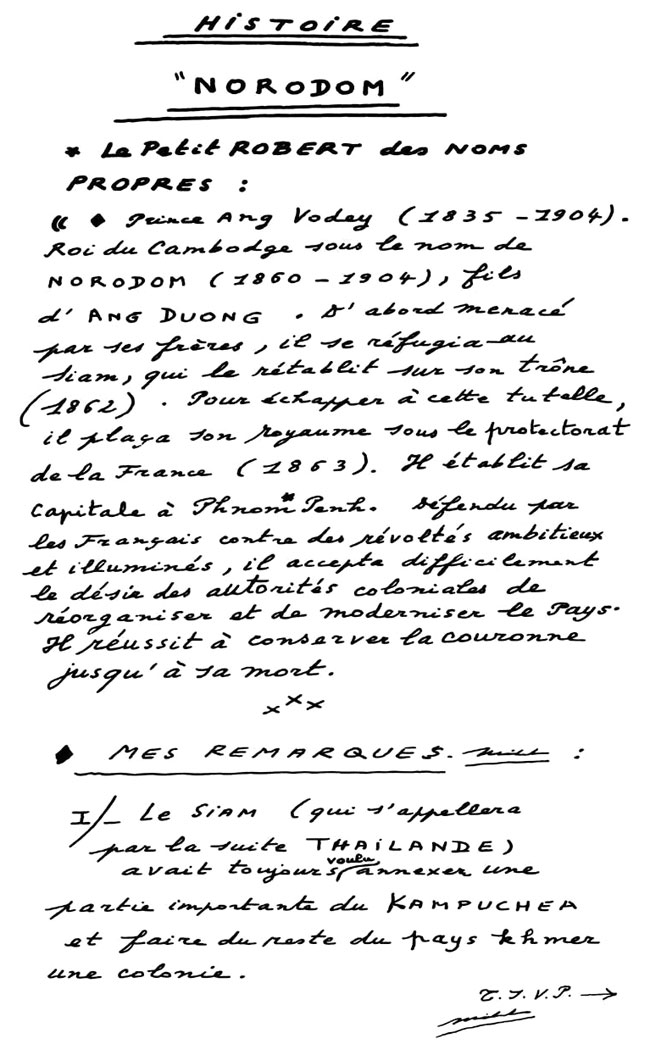 HISTOIRE
"NORODOM"
* Le Petit ROBERT des NOMS
PROPRES :
« ◆ Prince Ang Vodey (1835 - 1904).
Roi du Cambodge sous le nom de
NORODOM (1860 - 1904), fils
d'ANG DUONG. D'abord menacé
par ses frères, il se réfugia au
Siam, qui le rétablit sur son trône
(1862). Pour échapper à cette tutelle,
il plaça son royaume sous le protectorat
de la France (1863). Il établit sa
Capitale à Phnom*Penh. Défendu par
les Français contre des révoltés ambitieux
et illuminés, il accepta difficilement
le désir des autorités coloniales de
réorganiser et de moderniser le Pays.
Il réussit à conserver la couronne
jusqu'à sa mort.
x x x
◆ MES REMARQUES. :
I/- Le SIAM (qui s'appellera
par la suite THAILANDE)
voulu
avait toujours annexer une
partie importante du KAMPUCHEA
et faire du reste du pays khmer
une colonie.
T.S.V.P. →